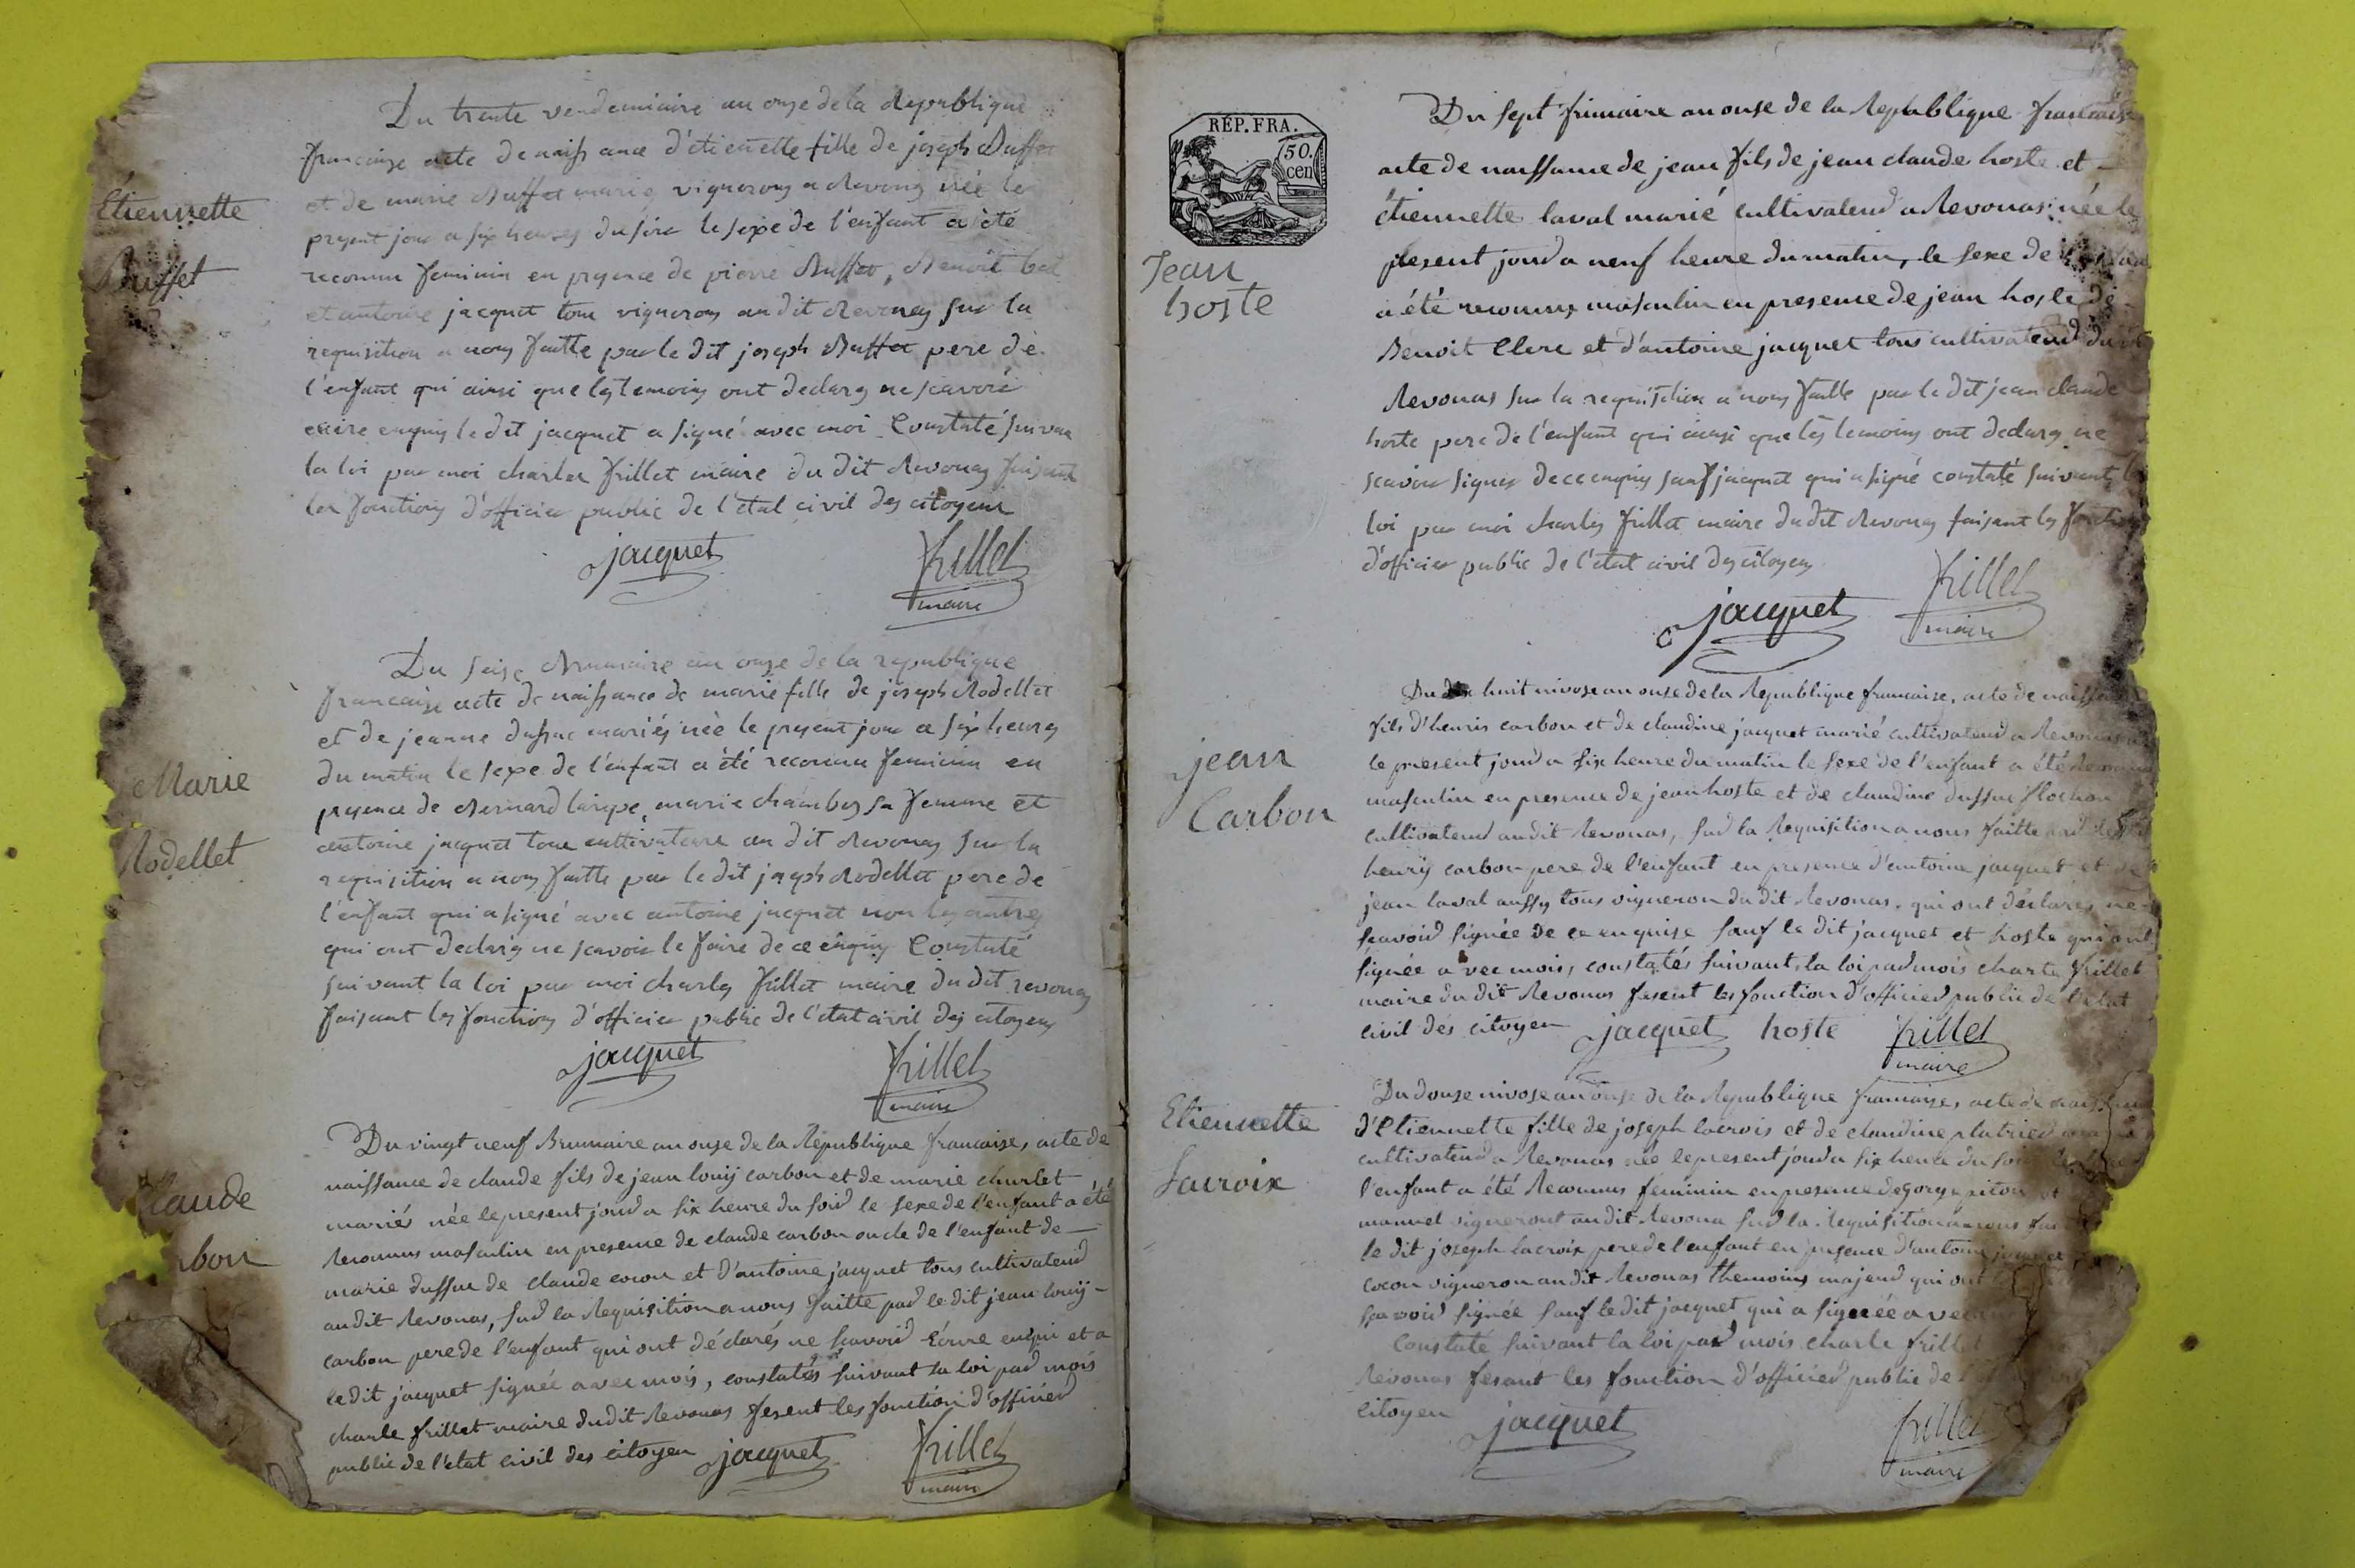 Du trente vendemiaire an onze de la Republique
francaise acte de naissance d'étiennette fille de joseph Buffet
et de marie Buffet mariés vignerons a Revonas née le
present jour a six heures du soir le sexe de l'enfant a été
reconnu feminin en presence de pierre Buffet, Benoit
et antoine jacquet tous vignerons au dit Revonas sur la
requisition a nous faitte par le dit joseph Buffet pere de
l'enfant qui ainsi que les temoins ont declarés ne scavoir
ecrire enquis le dit jacquet a signé avec moi Constaté suivant
la loi par moi charles frillet maire du dit Revonas faisant
les fonctions d'officier public de l'état civil des citoyens
Étiennette
Buffet
jacquet frillet
maire
Du seise Brumaire an onze de la republique
francaise acte de naissance de marie fille de joseph Rodellet
et de jeanne dussuc mariés née le present jour a six heures
du matin le sexe de l'enfant a été reconnu feminin en
presence de Bernard marie chambes sa femme et
antoine jacquet tous cultivateurs au dit Revonas sur la
requisition a nous faitte par le dit joseph Rodellet pere de
l'enfant qui a signé avec antoine jacquet non les autres
qui ont declarés ne scavoir le faire de ce enquis Constaté
suivant la loi par moi charles frillet maire du dit revonas
faisant les fonctions d'officier public de l'etat civil des citoyens
Marie
Rodellet
jacquet frillet
maire
Du vingt neuf Brumaire an onse de la Republique francaise, acte de
naissance de claude fils de jean louij carbon et de marie churlet
marié née le present jour a six heure du soir le sexe de l'enfant a été
reconnus masculin en presence de claude carbon oncle de l'enfant de
marie dussuc de claude cocon et d'antoine jacquet tous cultivateur
au dit Revonas, sur la Requisition a nous faitte par le dit jean louij
carbon pere de l'enfant qui ont déclarés ne scavoir Ecrire enqui et a
le dit jacquet signée avec mois, constatés suivant la loi par mois
charle frillet maire du dit Revonas fesent les fonction d'officier
public de l'etat civil des citoyen jacquet frillet
maire
laude
rbon
RÉP. FRA.
50.
cen
Du sept frimaire an onse de la Republique francaise
acte de naissance de jean fils de jean claude hoste et
étiennette laval marié cultivateur a Revonas née le
present jour a neuf heure du matin, le sexe de l'enfant
a été reconnus masculin en presence de jean hoste de
Benoit Clerc et d'antoine jacquet tous cultivateur du dit
Revonas sur la requisition a nous faitte par le dit jean claude
hoste pere de l'enfant qui ainsi que les temoins ont declarés ne
scavoir signer de ce enquis sauf jacquet qui a signé constaté suivant la
loi par moi charles frillet maire du dit Revonas faisant les fonctions
d'officier public de l'etat civil des citoyens
Jean
hoste
jacquet frillet
maire
Du dix huit nivose an onse de la Republique francaise, acte de naissance
fils d'henris carbon et de claudine jacquet marié cultivateur a Revonas
le present jour a six heure du matin le sexe de l'enfant a été Reconnu
masculin en presence de jean hoste et de claudine dussuc
cultivateur au dit Revonas, sur la Requisition a nous faitte par le dit
henrij carbon pere de l'enfant en presence d'antoine jacquet et de
jean laval aussy tous vigneron du dit Revonas. qui ont déclarés ne
scavoir signée de ce enquise sauf le dit jacquet et hoste qui ont
signée avec mois, constatés suivant la loi par mois charle frillet
maire du dit Revonas fesent les fonction d'officier public de l'etat
civil des citoyen jacquet hoste frillet
maire
jean
Carbon
Du douse nivose an onse de la Republique francaise, acte de naissance
d'Etiennette fille de joseph lacrois et de claudine platrier
cultivateur a Revonas née le present jour a six heure du soir
l'enfant a été Reconnus feminin en presence de gorge piton et
manuel vigneront au dit Revona sur la Requisition a nous
le dit joseph lacroix pere de l'enfant en presence d'antoine jacquet
cocon vigneron au dit Revonas themoins majeur qui ont
scavoir signée sauf le dit jacquet qui a signée avec
Constaté suivant la loi par mois charle frillet
Revonas fesant les fonction d'officier public de
citoyen jacquet frillet
maire
Etiennette
Lacroix